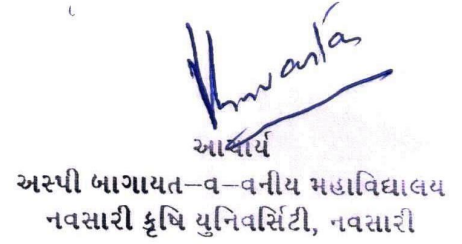 આચાર્ય
અસ્પી બાગાયત–વ–વનીય મહાવિદ્યાલય
નવસારી કૃષિ યુનિવર્સિટી, નવસારી